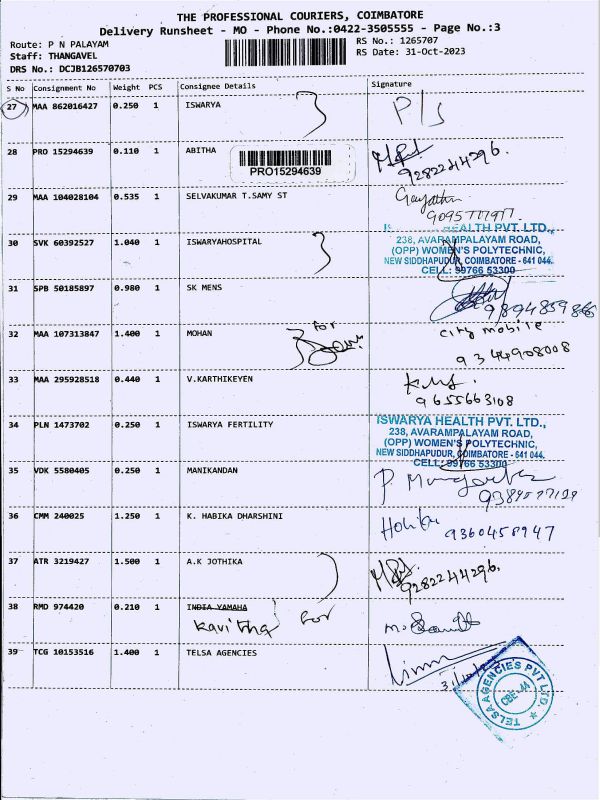 THE PROFESSIONAL COURIERS, COIMBATORE
Delivery Runsheet - MO - Phone No.:0422-3505555 - Page No.:3
Route: P N PALAYAM RS No.: 1265707
Staff: THANGAVEL RS Date: 31-Oct-2023
DRS No.: DCJB126570703
S No Consignment No Weight PCS Consignee Details Signature
27 MAA 862016427 0.250 1 ISWARYA P/S
28 PRO 15294639 0.110 1 ABITHA
PRO15294639
9282244296.
29 MAA 104028104 0.535 1 SELVAKUMAR T.SAMY ST Gayathri
HEALTH PVT. LTD.,
238, AVARAMPALAYAM ROAD,
30 SVK 60392527 1.040 1 ISWARYAHOSPITAL (OPP) WOMEN'S POLYTECHNIC,
NEW SIDDHAPUDUR, COIMBATORE - 641 044.
CELL: 99766 53300
31 SPB 50185897 0.980 1 SK MENS
9894859866
32 MAA 107313847 1.400 1 MOHAN for city mobile
9344908008
33 MAA 295928518 0.440 1 V.KARTHIKEYEN
9655663108
34 PLN 1473702 0.250 1 ISWARYA FERTILITY ISWARYA HEALTH PVT. LTD.,
238, AVARAMPALAYAM ROAD,
(OPP) WOMEN'S POLYTECHNIC,
NEW SIDDHAPUDUR, COIMBATORE - 641 044.
CELL: 99766 53300
35 VDK 5580405 0.250 1 MANIKANDAN
36 CMM 240025 1.250 1 K. HABIKA DHARSHINI 9360458947
37 ATR 3219427 1.500 1 A.K JOTHIKA
9282244296.
38 RMD 974420 0.210 1 INDIA YAMAHA
Kavitha for
39 TCG 10153516 1.400 1 TELSA AGENCIES
TELSA AGENCIES PVT LTD.
CBE-44